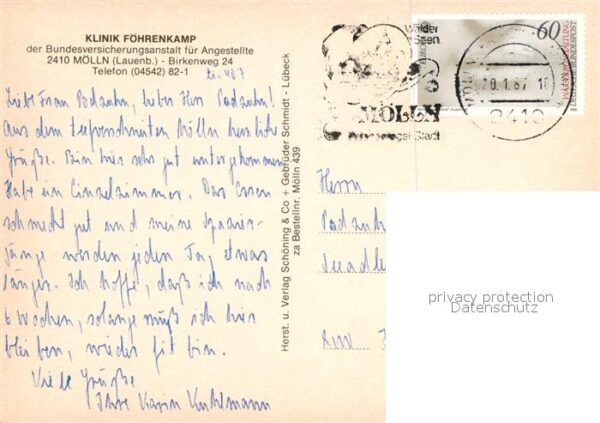 KLINIK FÖHRENKAMP
der Bundesversicherungsanstalt für Angestellte
2410 MÖLLN (Lauenb.) - Birkenweg 24
Telefon (04542) 82-1
Liebe Frau Podzuhn, lieber Herr Podzuhn!
Aus dem tiefverschneiten Mölln herzliche
Grüße. Bin hier sehr gut untergekommen
Habe ein Einzelzimmer. Das Essen
schmeckt gut und meine Spazier-
gänge werden jeden Tag etwas
länger. Ich hoffe, daß ich nach
6 Wochen, solange muß ich hier
bleiben, wieder fit bin.
Viele Grüße
Ihre Karin Kuhlmann
Herst. u. Verlag Schöning & Co + Gebrüder Schmidt - Lübeck
za Bestellnr. Mölln 439
Wälder
Seen
MÖLLN
Stadt
60
DEUTSCHE BUNDESPOST
EUROPA
MÖLLN
20.1.87-18
2410
Herrn
privacy protection
Datenschutz